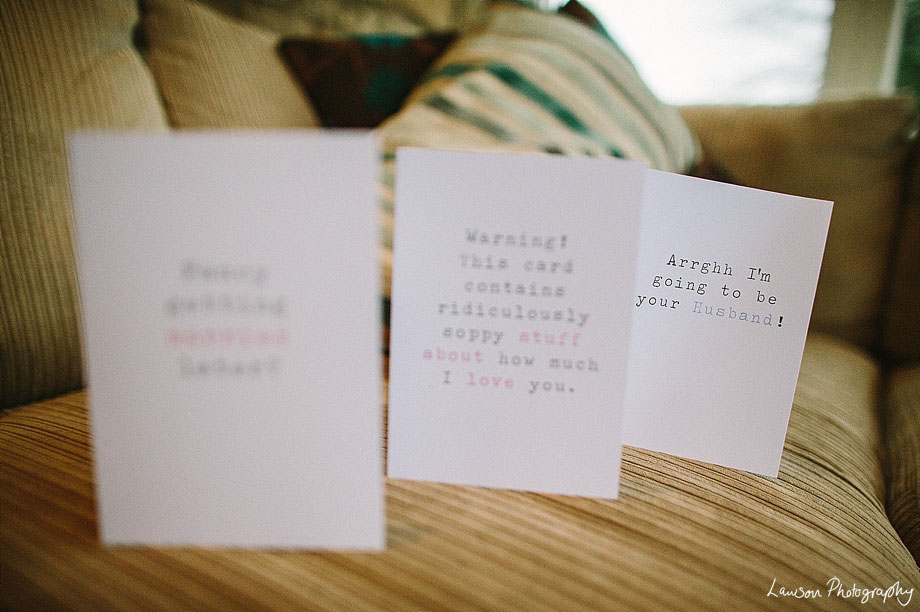 Fancy
getting
married
later?
Warning!
This card
contains
ridiculously
soppy stuff
about how much
I love you.
Arrghh I'm
going to be
your Husband!
Lawson Photography